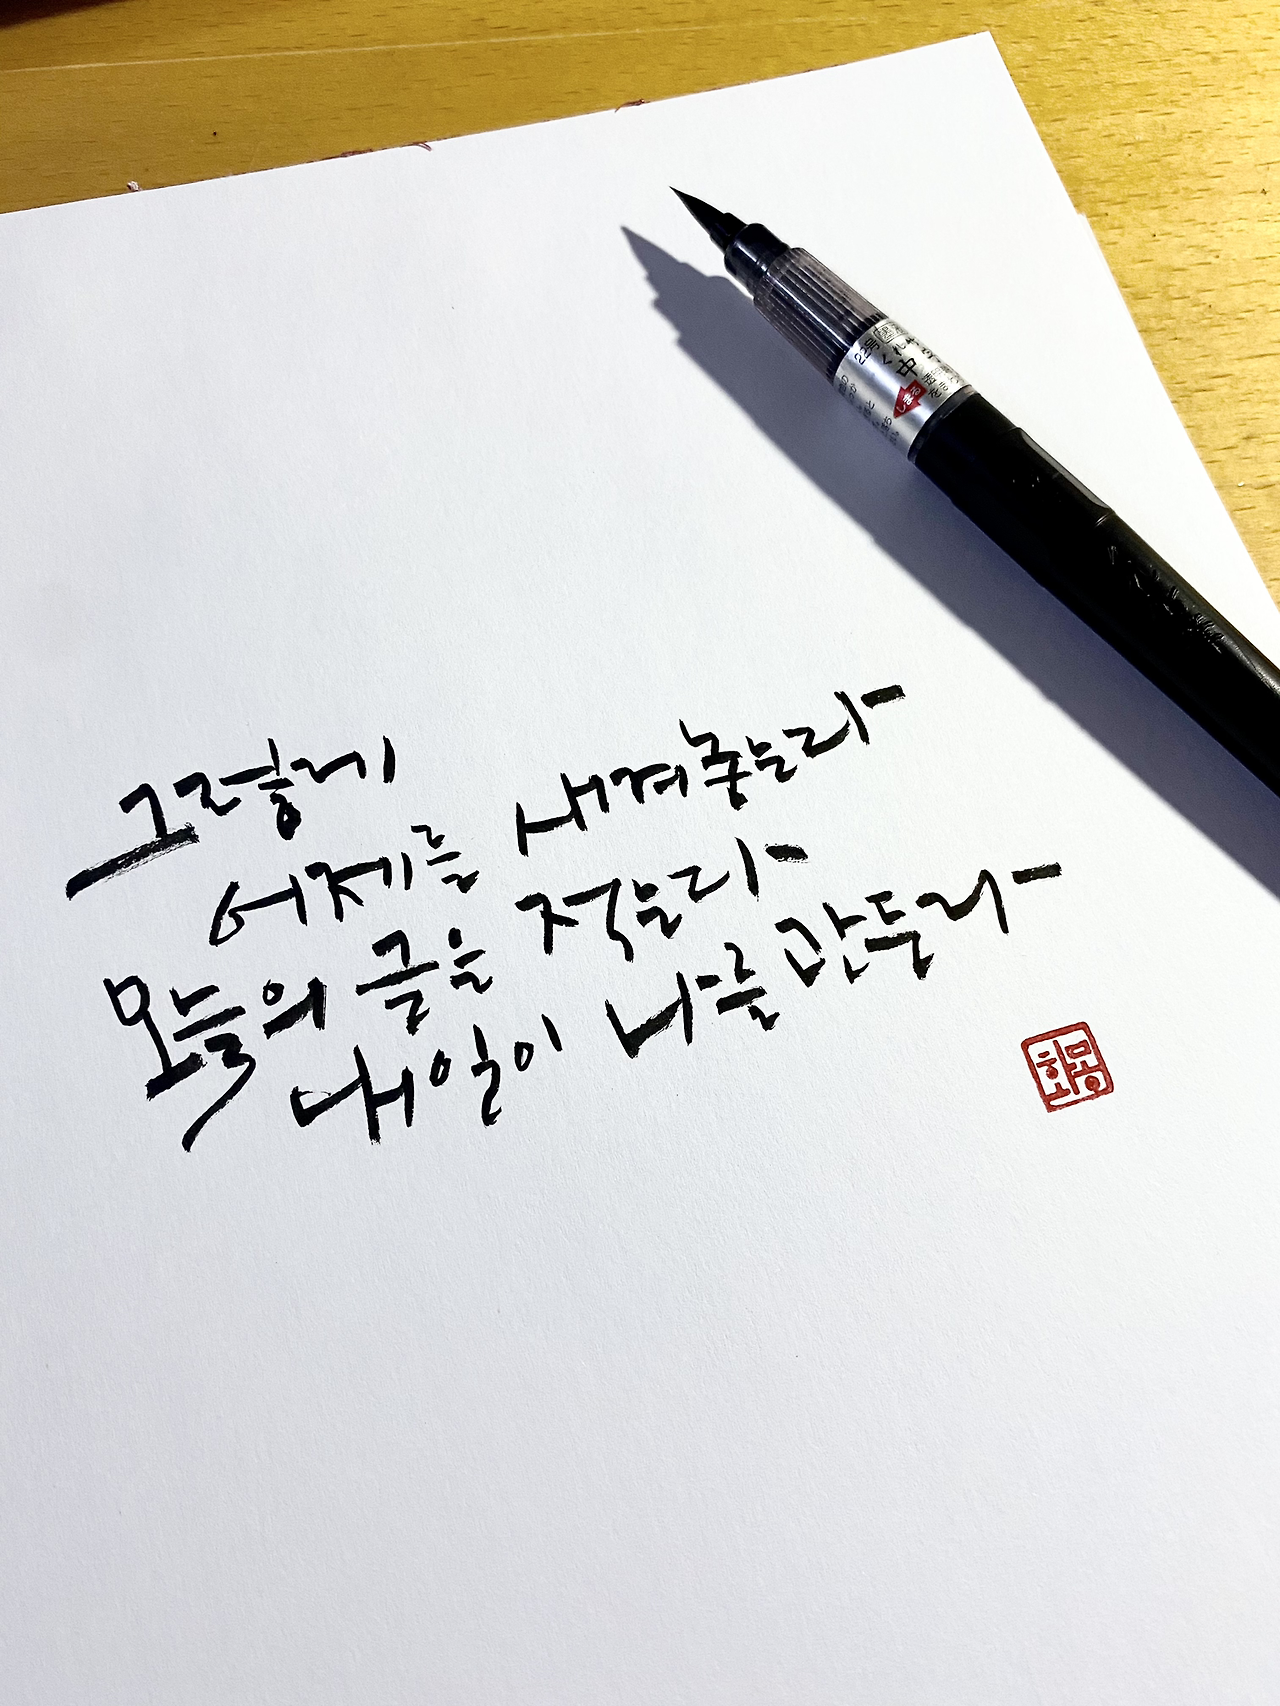 그렇게
어제를 새겨놓는다
오늘의 글을 적는다
내일이 나를 만든다
22号
中